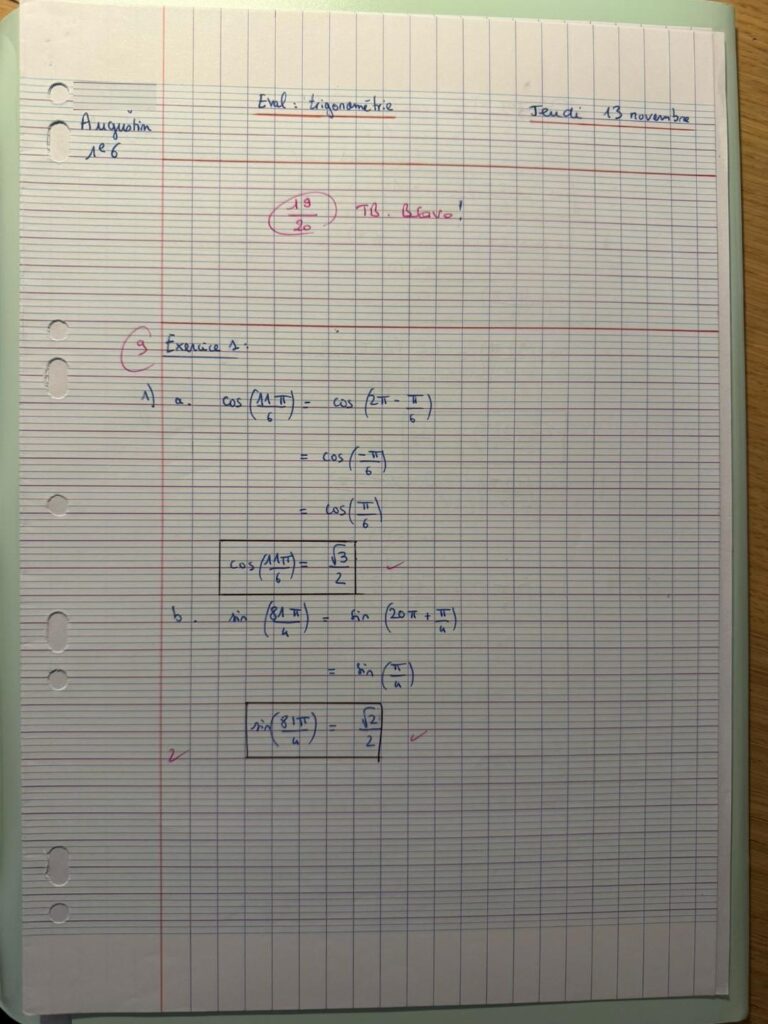 Eval : trigonométrie
Jeudi 13 novembre
Augustin
1e6
19/20 TB. Bravo!
9 Exercice 1 :
1) a. cos(11π/6) = cos(2π - π/6)
= cos(-π/6)
= cos(π/6)
cos(11π/6) = √3/2 ✓
b. sin(81π/4) = sin(20π + π/4)
= sin(π/4)
sin(81π/4) = √2/2 ✓
2